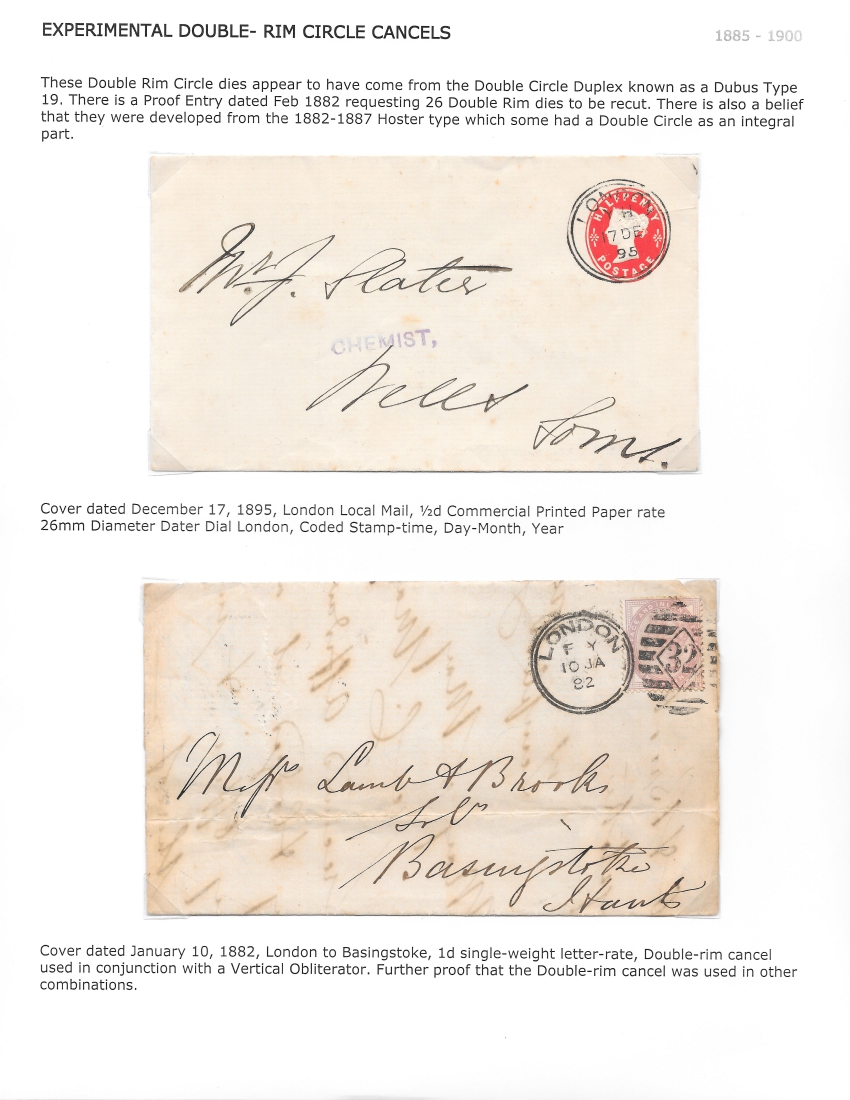 EXPERIMENTAL DOUBLE- RIM CIRCLE CANCELS
1885 - 1900
These Double Rim Circle dies appear to have come from the Double Circle Duplex known as a Dubus Type
19. There is a Proof Entry dated Feb 1882 requesting 26 Double Rim dies to be recut. There is also a belief
that they were developed from the 1882-1887 Hoster type which some had a Double Circle as an integral
part.
LONDON
17 DE
95
HALFPENNY
POSTAGE
Mr. J. Slater
CHEMIST,
Wells
Soms.
Cover dated December 17, 1895, London Local Mail, ½d Commercial Printed Paper rate
26mm Diameter Dater Dial London, Coded Stamp-time, Day-Month, Year
LONDON
F Y
10 JA
82
32
Messrs Lamb & Brooks
Solrs
Basingstoke
Hants
Cover dated January 10, 1882, London to Basingstoke, 1d single-weight letter-rate, Double-rim cancel
used in conjunction with a Vertical Obliterator. Further proof that the Double-rim cancel was used in other
combinations.